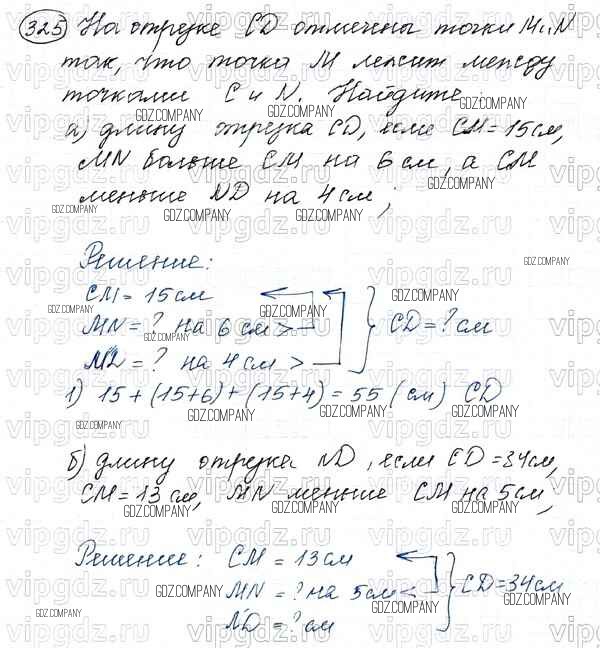 325 На отрезке CD отмечены точки M и N
так, что точка M лежит между
точками C и N. Найдите:
GDZ.COMPANY
а) длину отрезка CD, если CM = 15 см,
MN больше CM на 6 см, а CM
меньше ND на 4 см;
GDZ.COMPANY
Решение:
CM = 15 см
MN = ? на 6 см >
ND = ? на 4 см >
CD = ? см
1) 15 + (15+6) + (15+4) = 55 (см) CD
GDZ.COMPANY
б) длину отрезка ND, если CD = 34 см,
CM = 13 см, MN меньше CM на 5 см,
GDZ.COMPANY
Решение: CM = 13 см
MN = ? на 5 см <
ND = ? см
CD = 34 см
GDZ.COMPANY
vipgdz.ru